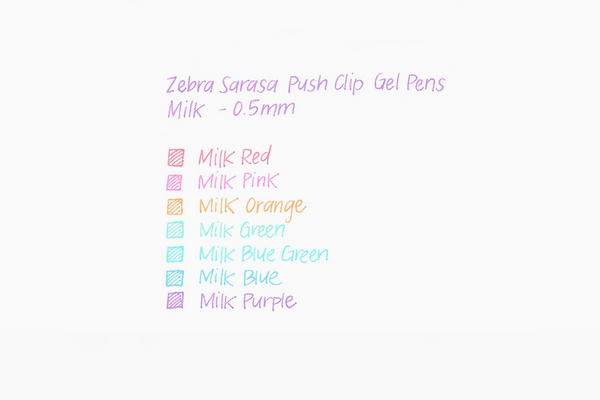 Zebra Sarasa Push Clip Gel Pens
Milk - 0.5mm
Milk Red
Milk Pink
Milk Orange
Milk Green
Milk Blue Green
Milk Blue
Milk Purple